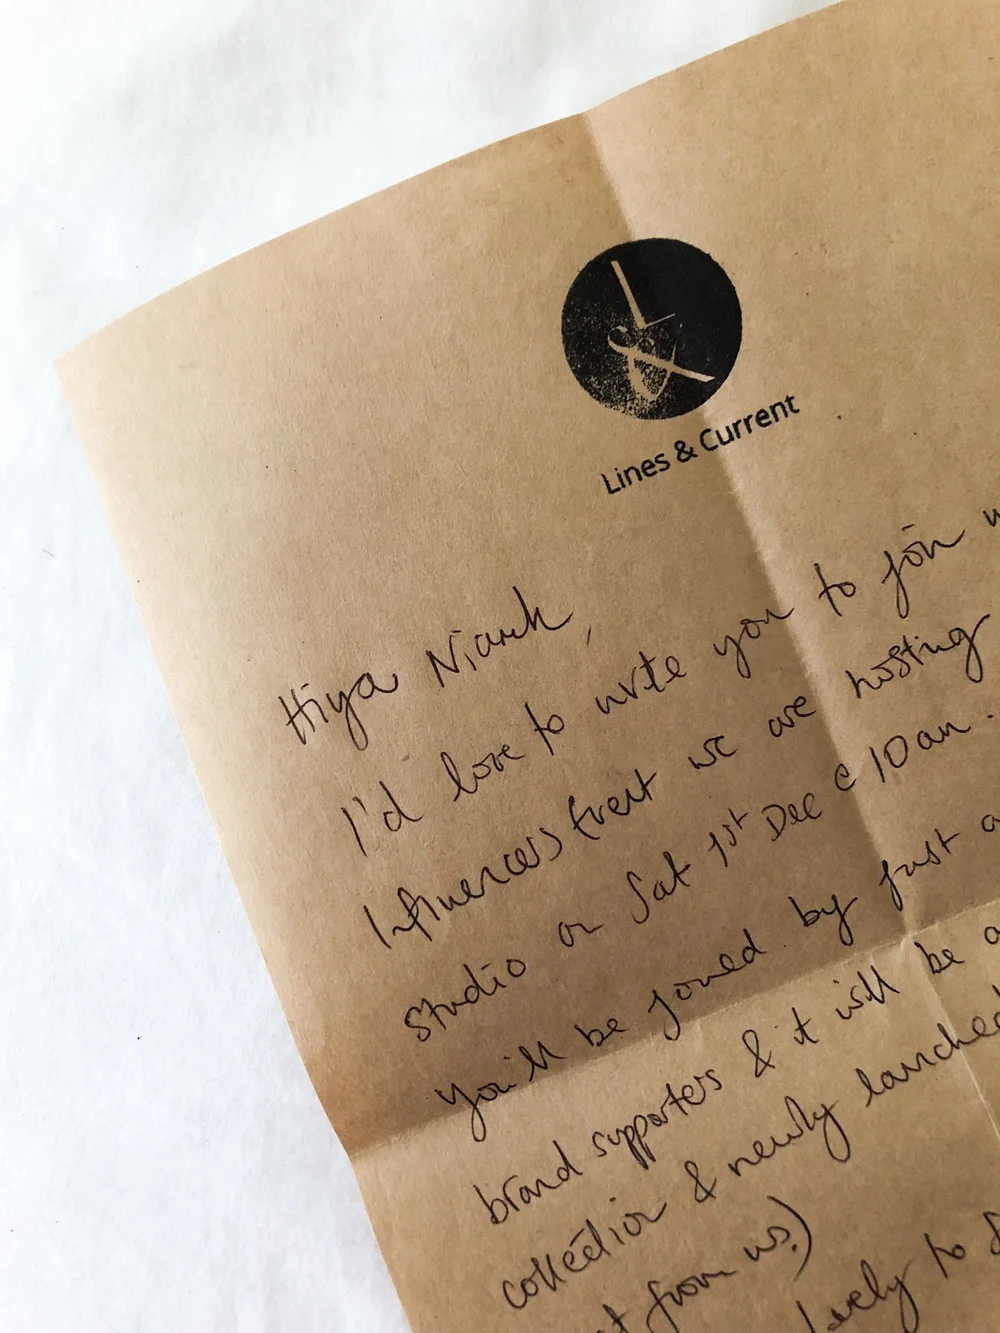 Lines & Current
Hiya Niamh,
I'd love to invite you to join
Influencers Event we are hosting
studio on Sat 1st Dec @ 10am.
You'll be joined by just a
brand supporters & it will be a
collection & newly launched
from us!)
lovely to